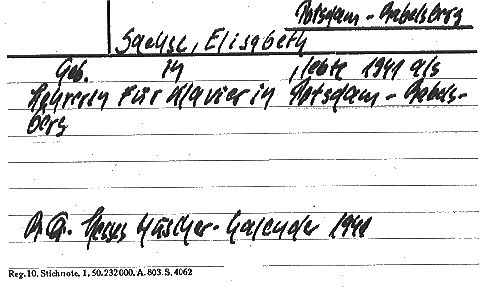 Potsdam-Babelsberg
Sachse, Elisabeth
Geb. in , lebte 1941 als
Lehrerin für Klavier in Potsdam-Babels-
berg
Hesses Musiker-Kalender 1941
Reg. 10. Stichnote. 1, 50. 232000. A. 803. S. 4062